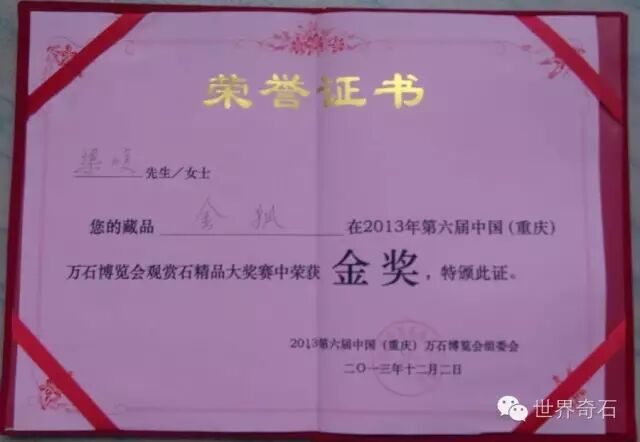 荣誉证书
先生／女士
您的藏品 金狐 在2013年第六届中国(重庆)
万石博览会观赏石精品大奖赛中荣获 金奖，特颁此证。
2013第六届中国（重庆）万石博览会组委会
二〇一三年十二月二日
世界奇石